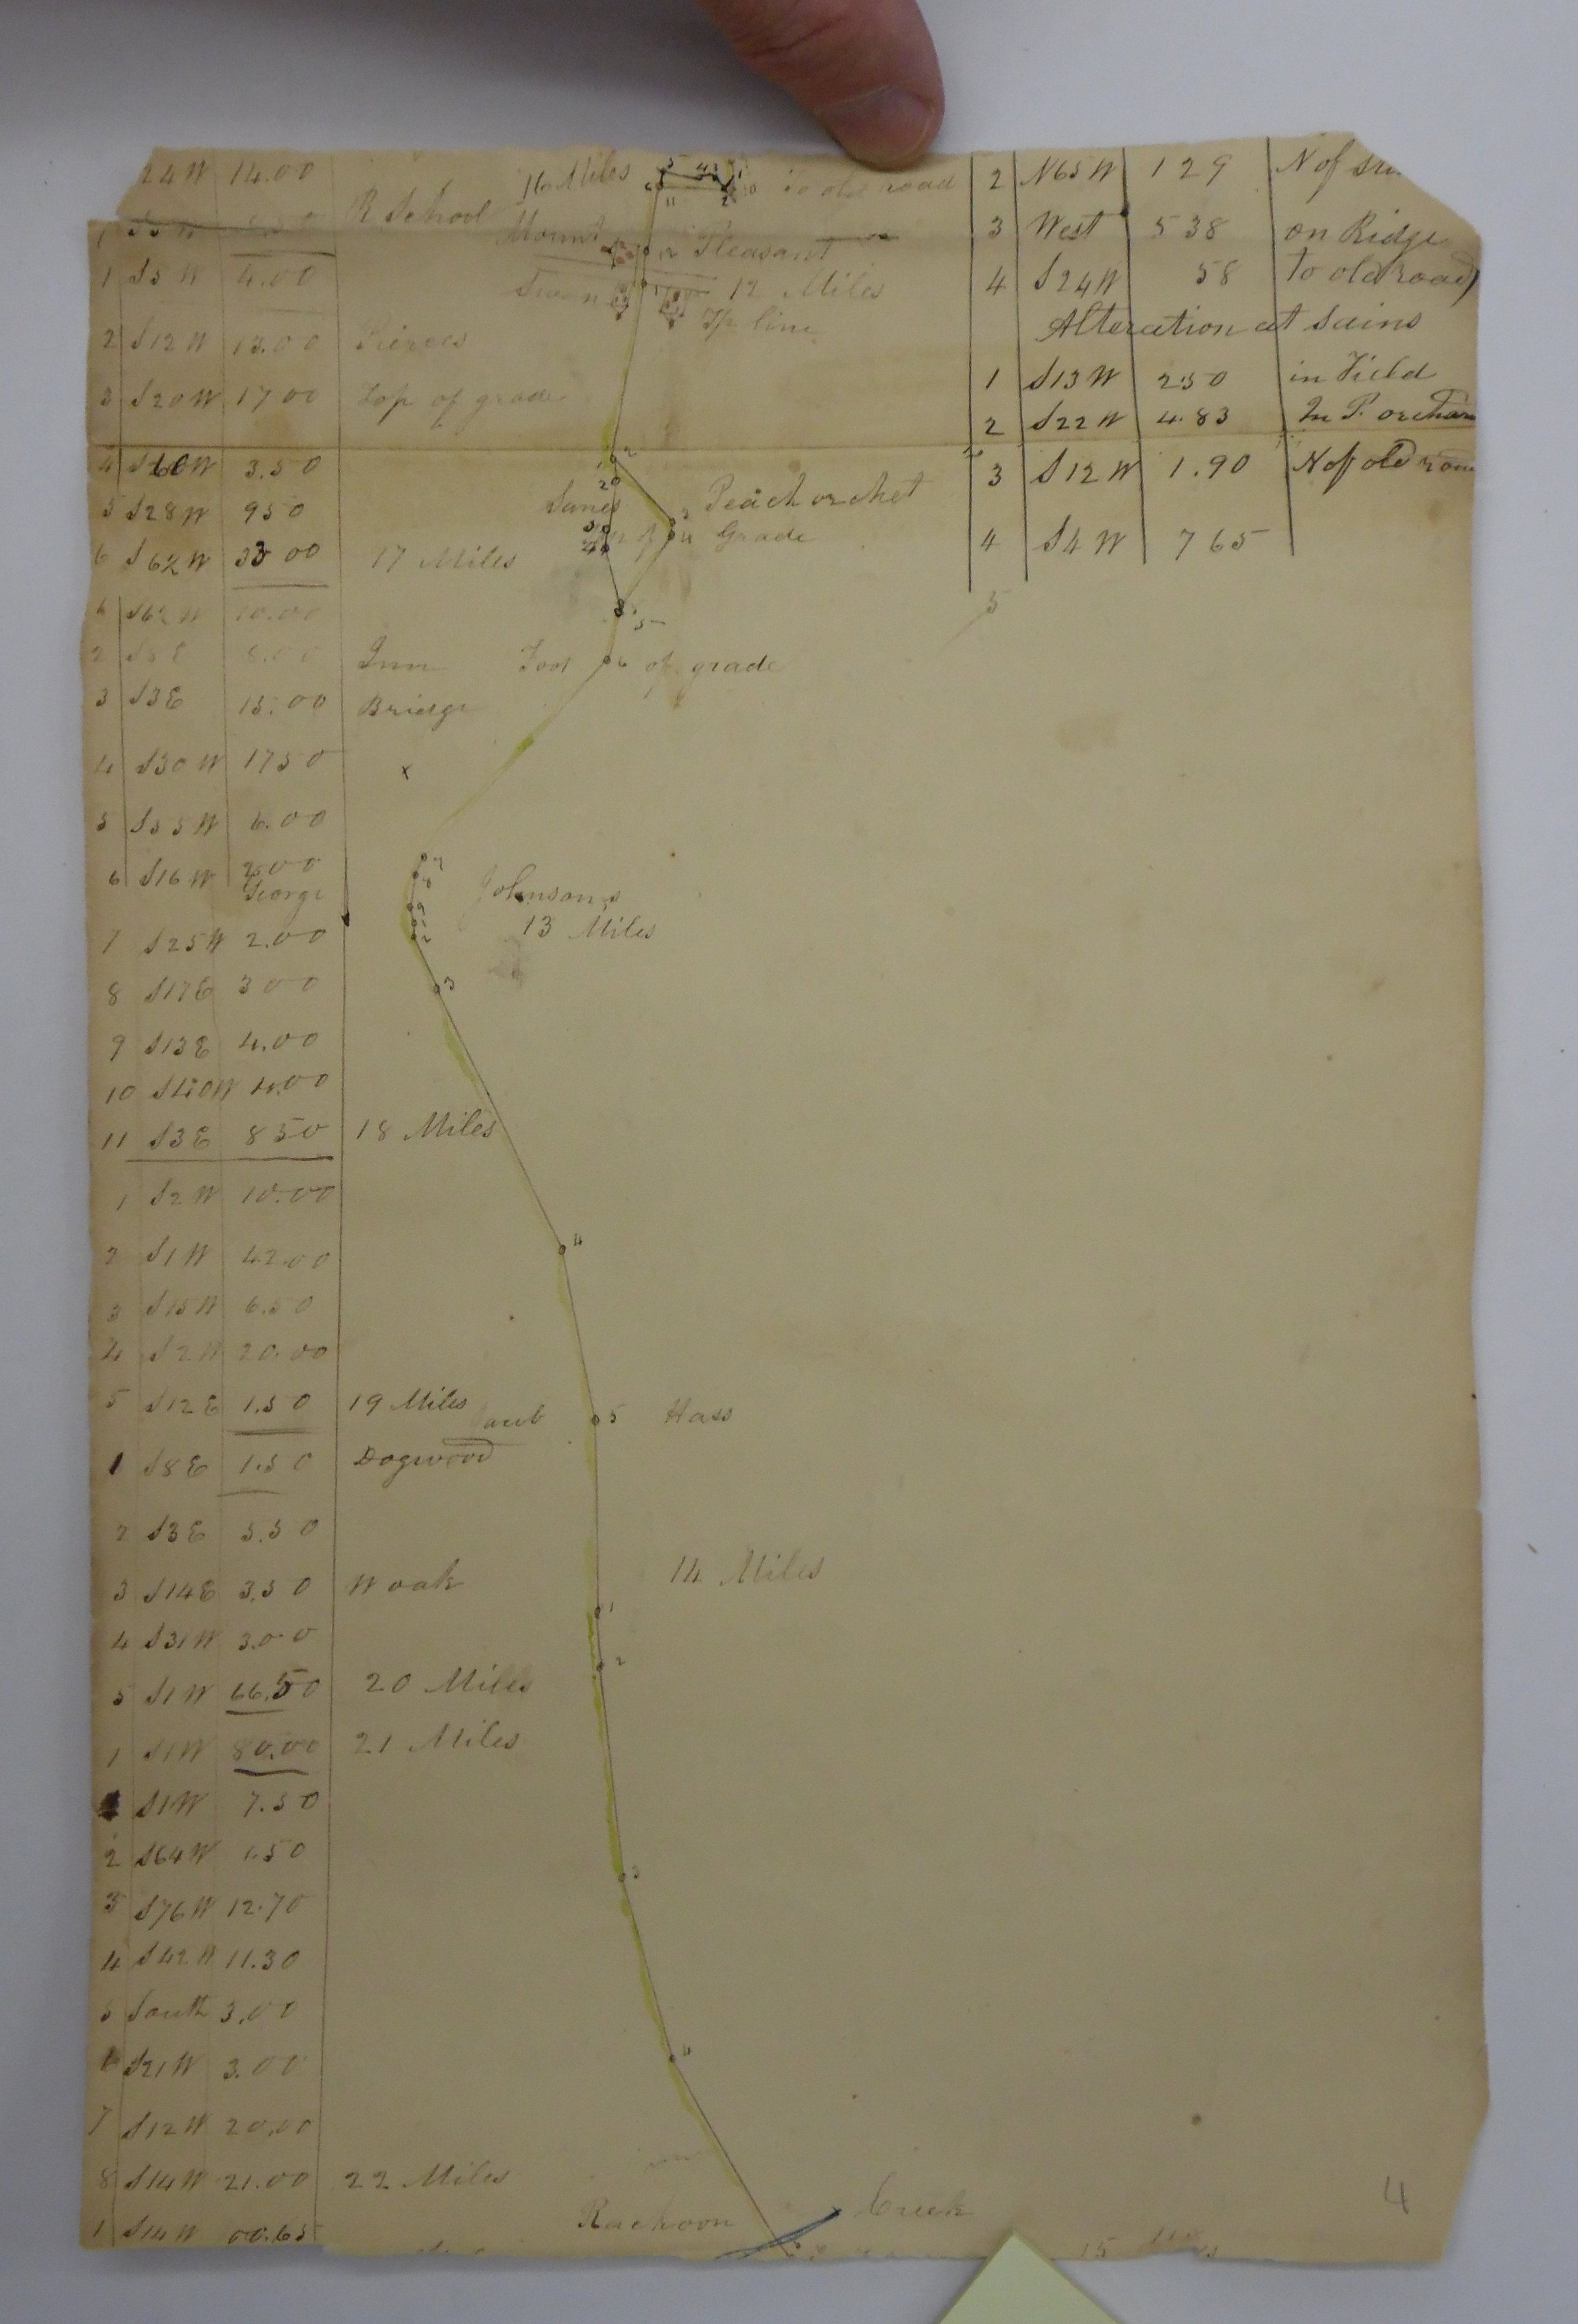 24W 14.00
R School
1 S5W
1 S5W 4.00
2 S12W 13.00 Pierces
3 S20W 17 00 Top of grade
4 S60W 3.50
5 S28W 950
6 S62W 33 00 17 Miles
6 S62W 10.00
2 S8E 8.00 Inn
3 S3E 15.00 Bridge
4 S30W 1750 x
5 S55W 6.00
6 S16W 2.00
George
7 S25W 2.00
8 S17E 300
9 S13E 4.00
10 S40W 4.00
11 S3E 850 18 Miles
1 S2W 10.00
2 S1W 42.00
3 S15W 6.50
4 S2W 20.00
5 S12E 1.50 19 Miles
1 S8E 1.50 Dogwood
2 S3E 5.50
3 S14E 3.50 W oak
4 S31W 3.00
5 S1W 66.50 20 Miles
1 S1W 80.00 21 Miles
S1W 7.50
2 S64W 1.50
3 S76W 12.70
4 S42W 11.30
5 South 3.00
6 S21W 3.00
7 S12W 20.00
8 S14W 21.00 22 Miles
1 S14W 00.65
16 Miles
5 43 1
6 11 2 10 to old road
Mount 12 Pleasant
1 12 Miles
Tp line
1 2
2
3 Peach orchet
3 4 Grade
5
6 Foot of grade
7
8 Johnsons
9
1 13 Miles
2
3
4
5 Hass
14 Miles
1
2
3
4
Rackoon Creek
15
2 N65W 1 29 N of
3 West 5 38 on Ridge
4 S24W 58 to old road
Alteration at Sains
1 S13W 2.50 in Field
2 S22W 4.83 In P. orchar
3 S12W 1.90 N of old roa
4 S4W 7 65
5
4